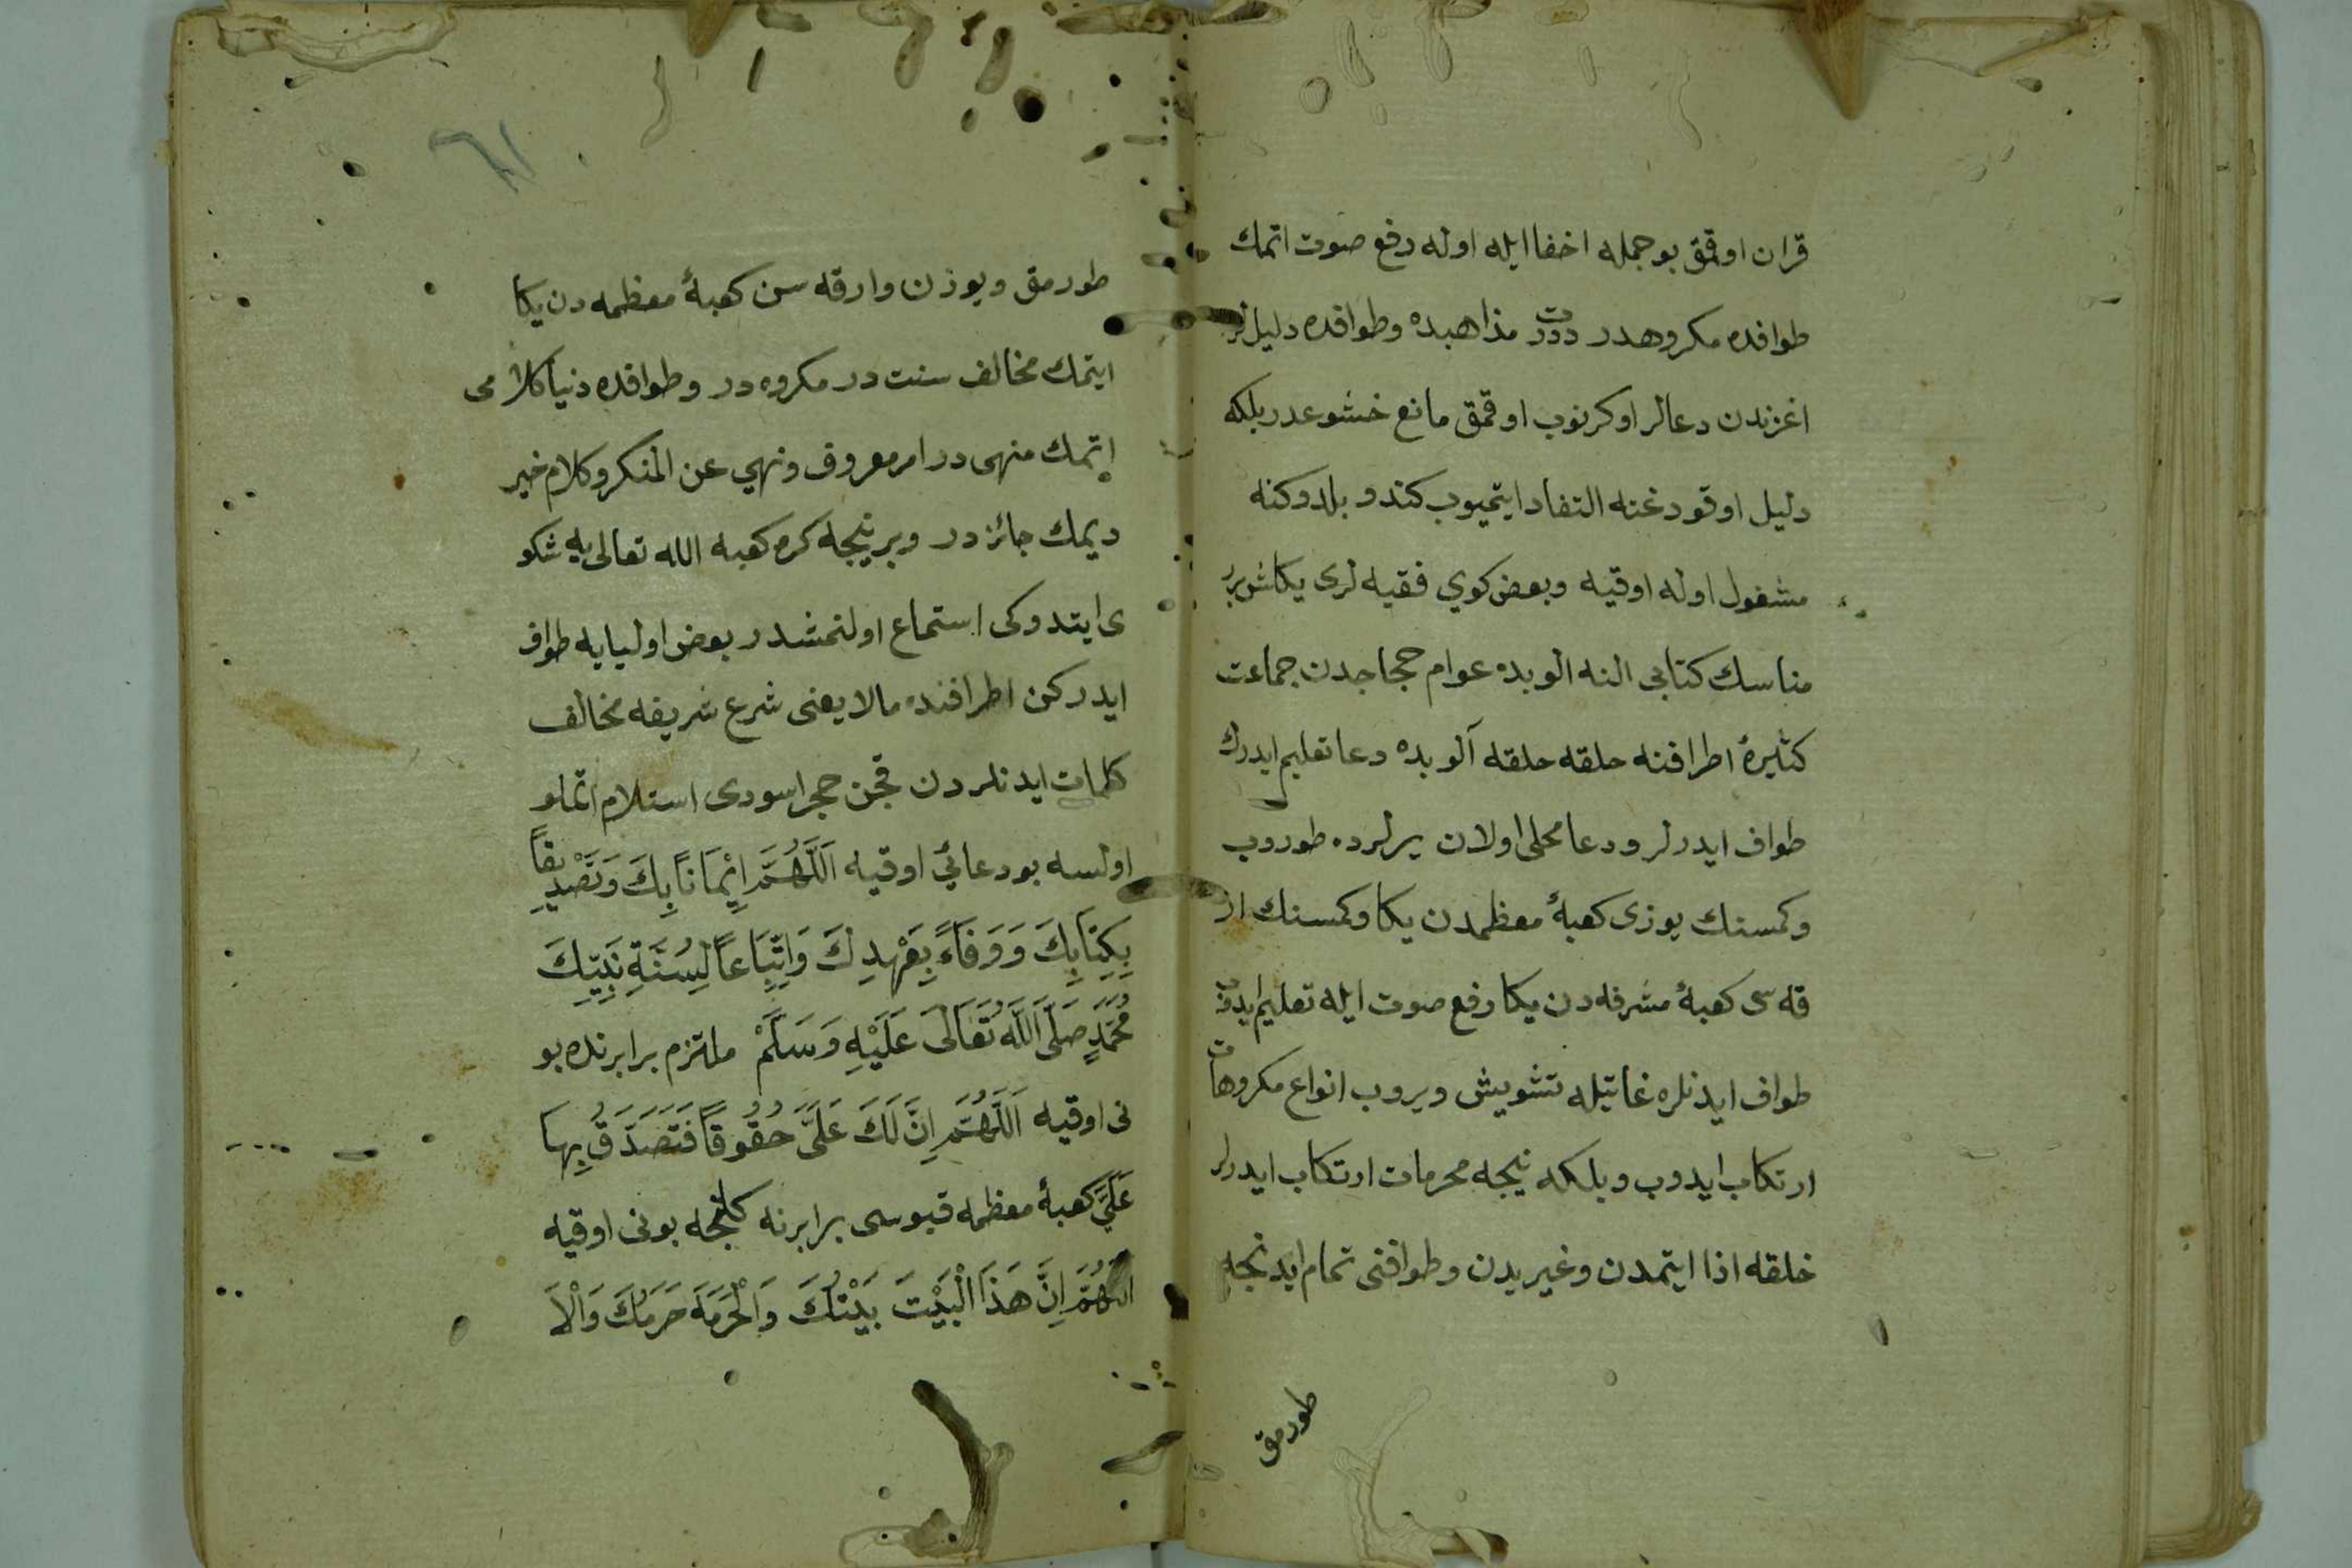 قران اوقمق بو جمله اخفا ايله اوله رفع صوت اتمك
طوافده مكروهدر درت مذاهبده وطوافده دليللر
اغزندن دعالر اوكرنوب اوقمق مانع خشوعدر بلكه
دليل اوقودغنه التفاد ايتميوب كندو بلدوكنه
مشغول اوله اوقيه وبعض كوي فقيه لرى يكاش برر
مناسك كتابى النه الوبده عوام حجاجدن جماعت
كثيرۀ اطرافنه حلقه حلقه آلوبده دعا تعليم ايدرك
طواف ايدرلر ودعا محلى اولان يرلرده طوروب
وكمسنك يوزى كعبۀ معظمدن يكا وكمسنك ار
قه سى كعبۀ مشرفه دن يكا رفع صوت ايله تعليم ايدوب
طواف ايدنلره غايتيله تشويش ويروب انواع مكروهات
ارتكاب ايدوب وبلكه نيجه محرمات ارتكاب ايدرلر
خلقه اذا ايتمدن وغيريدن وطوافنى تمام ايدنجه
طورمق
٦١
طورمق ويوزن وارقه سن كعبۀ معظمه دن يكا
ايتمك مخالف سنت در مكروه در وطوافده دنيا كلامى
اتمك منهى در امر معروف ونهي عن المنكر وكلام خير
ديمك جائز در وبر نيجه كره كعبه الله تعالى يه شكو
ى ايتدوكى استماع اولنمشدر بعض اوليايه طواف
ايدركن اطرافنده مالا يعنى شرع شريفه مخالف
كلمات ايدنلردن قچن حجر اسودى استلام اتملو
اولسه بو دعائي اوقيه اَللَّهُمَّ اِيْمَانًا بِكَ وَتَصْدِيقًا
بِكِتَابِكَ وَوَفَاءً بِعَهْدِكَ وَاِتِّبَاعًا لِسُنَّةِ نَبِيِّكَ
مُحَمَّدٍ صَلَّى اللَّهُ تَعَالَى عَلَيْهِ وَسَلَّمْ ملتزم برابرنده بو
نى اوقيه اَللَّهُمَّ اِنَّ لَكَ عَلَيَّ حُقُوقًا فَتَصَدَّقْ بِهَا
عَلَيَّ كعبۀ معظمه قپوسى برابرنه كلنجه بونى اوقيه
اللَّهُمَّ اِنَّ هَذَا الْبَيْتَ بَيْتُكَ وَالْحَرَمَ حَرَمُكَ وَالْاَ